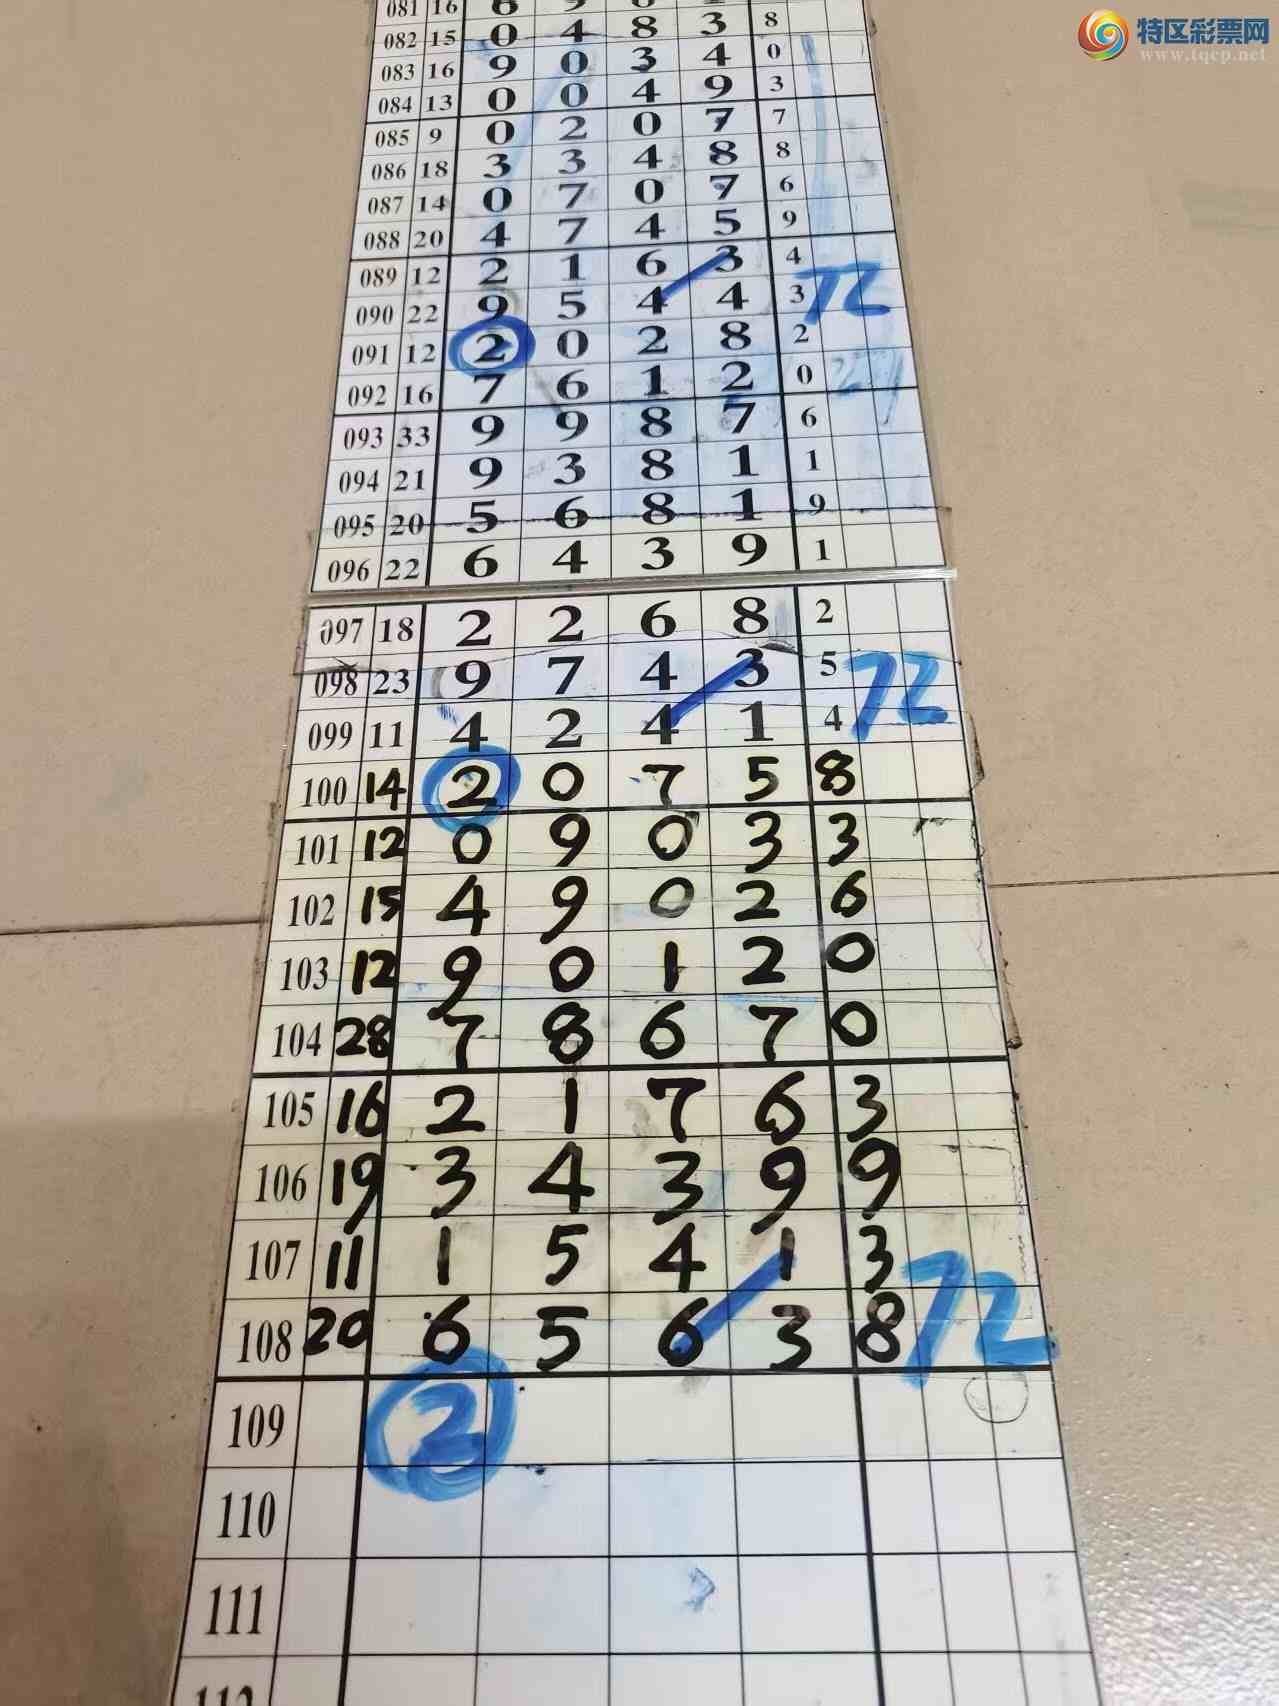 特区彩票网
www.tqcp.net
081 16
082 15 0 4 8 3 8
083 16 9 0 3 4 0
084 13 0 0 4 9 3
085 9 0 2 0 7 7
086 18 3 3 4 8 8
087 14 0 7 0 7 6
088 20 4 7 4 5 9
089 12 2 1 6 3 4
090 22 9 5 4 4 3 72
091 12 2 0 2 8 2
092 16 7 6 1 2 0
093 33 9 9 8 7 6
094 21 9 3 8 1 1
095 20 5 6 8 1 9
096 22 6 4 3 9 1
097 18 2 2 6 8 2
098 23 9 7 4 3 5 72
099 11 4 2 4 1 4
100 14 2 0 7 5 8
101 12 0 9 0 3 3
102 15 4 9 0 2 6
103 12 9 0 1 2 0
104 28 7 8 6 7 0
105 16 2 1 7 6 3
106 19 3 4 3 9 9
107 11 1 5 4 1 3
108 20 6 5 6 3 8 72
109 2
110
111
112